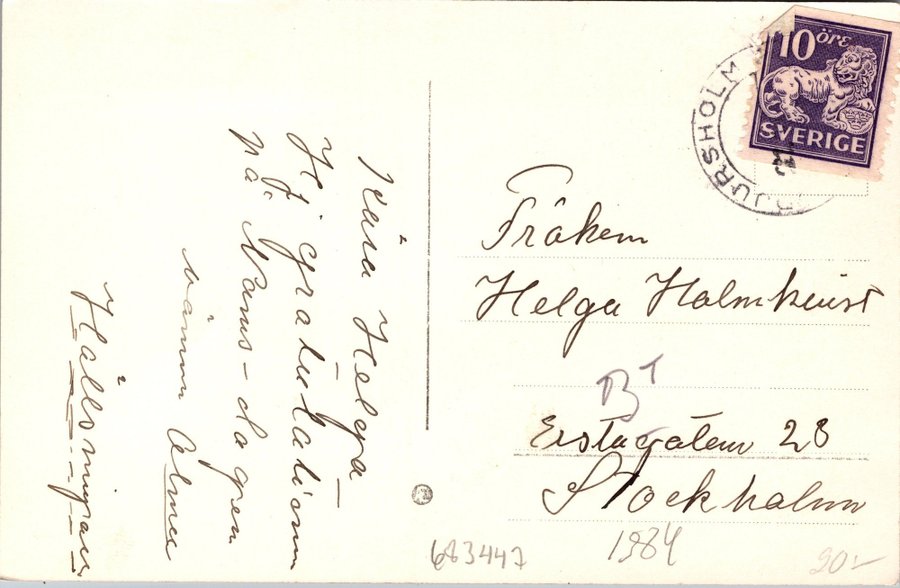 Kära Helga –
Hj gratulation
på Namns-dagen
vännen Alma
Hälsningar
10 öre
SVERIGE
DJURSHOLM
Fröken
Helga Holmkvist
BT
Erstagatan 28
Stockholm
683447
1984
20:-